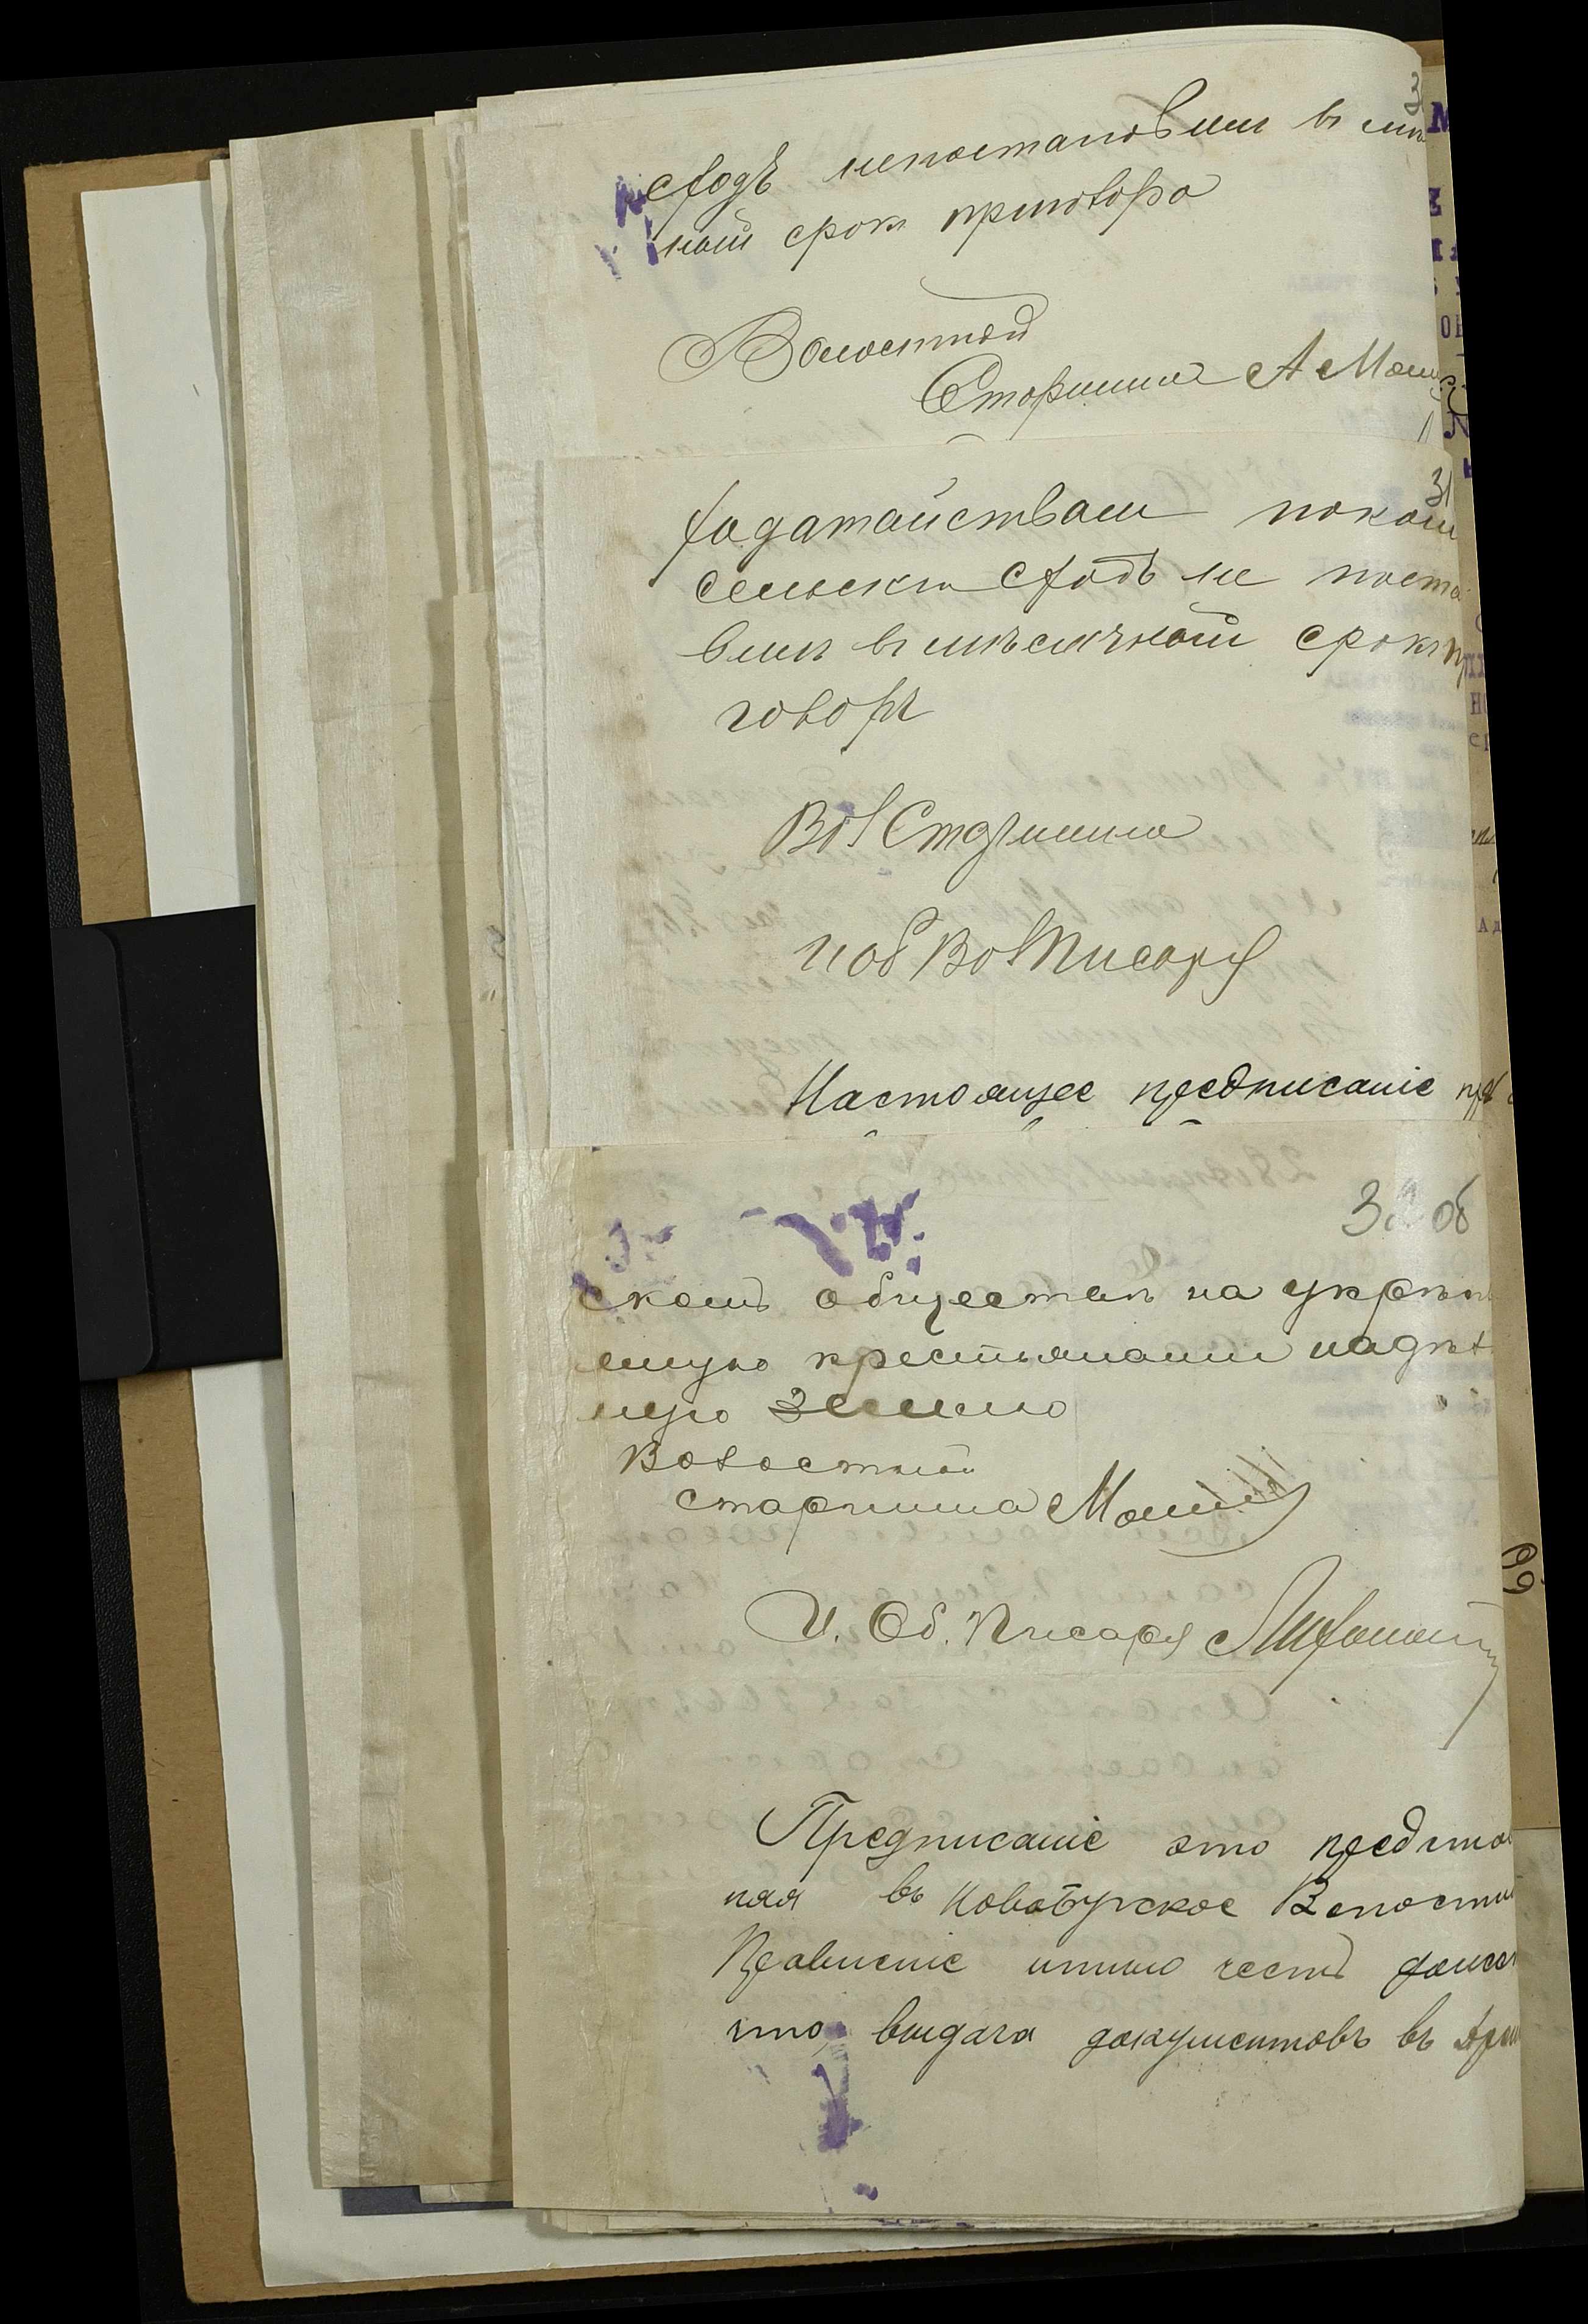 3
сходъ непостановилъ въ мѣс
ный срокъ приговора
Волостной
Старшина А Маш
31
ходатайствам покам
сельскій сходъ не поста
вилъ въ мѣсячный срокъ пр
говоръ
Вол Старшина
И об Вол Писаря
Настоящее предписаніе пре
3 об
скомъ обществѣ на укрѣпл
енную крестьянами надѣл
ную землю
Волостной
старшина
И. Об. Писаря
Предписаніе это предста
ляя въ Новобурское Волостн
Правленіе имѣю честь донест
что, выдача документовъ въ